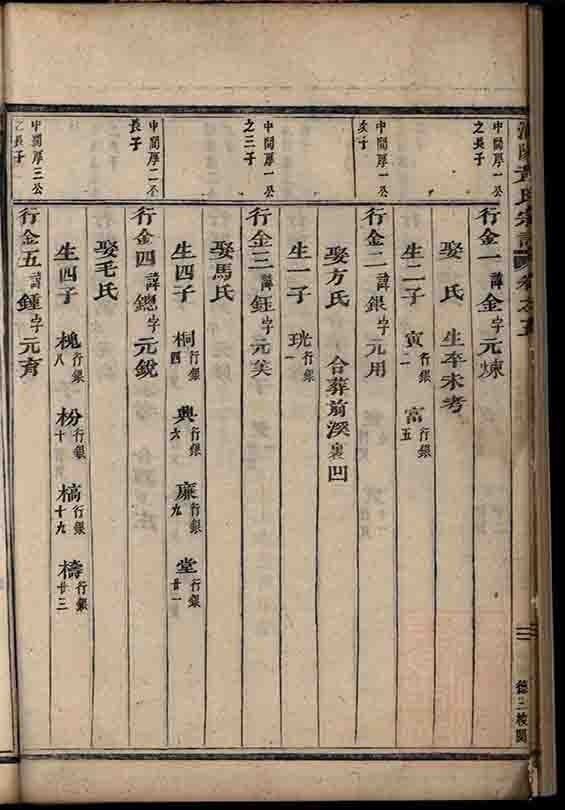 氏宗譜 卷之五
三
德三校閱
中閣厚一公之長子
行金一諱金字元煉
娶 氏 生卒未考
生二子 寅行銀二 富行銀五
中閣厚一公次子
行金二諱銀字元用
娶方氏 合葬前溪裏凹
生一子 珖行銀一
中閣厚一公之三子
行金三諱鈺字元美
娶馬氏
生四子 桐行銀四 興行銀六 廉行銀九 堂行銀廿一
中閣厚二公長子
行金四諱鏓字元銳
娶毛氏
生四子 槐行銀八 枌行銀十 槁行銀十九 檮行銀廿三
中閣厚三公之長子
行金五諱鍾字元育